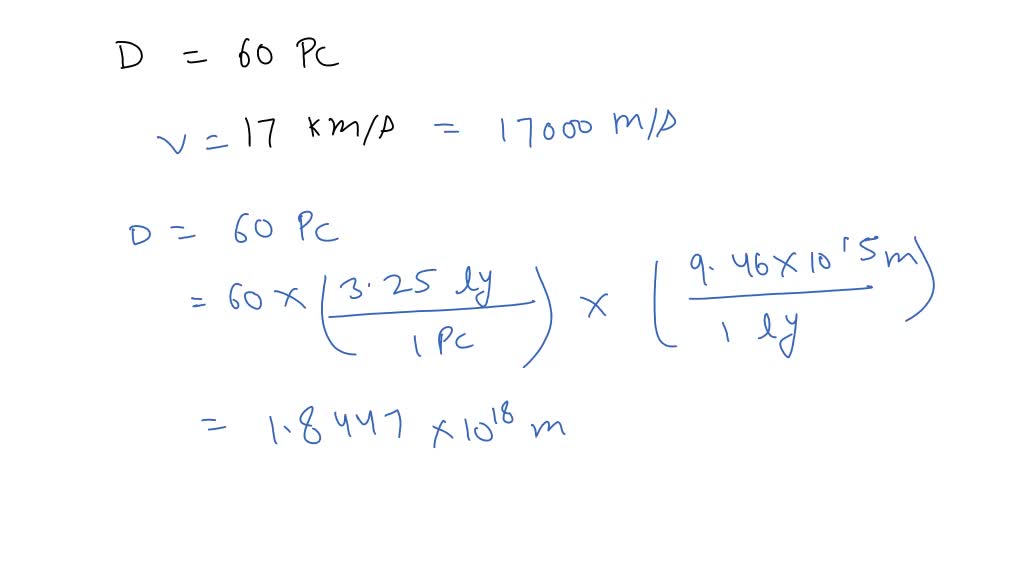 D = 60 PC
V = 17 km/s = 17000 m/s
D = 60 PC
= 60 × (3.25 ly / 1 PC) × (9.46 × 10^15 m / 1 ly)
= 1.8447 × 10^18 m